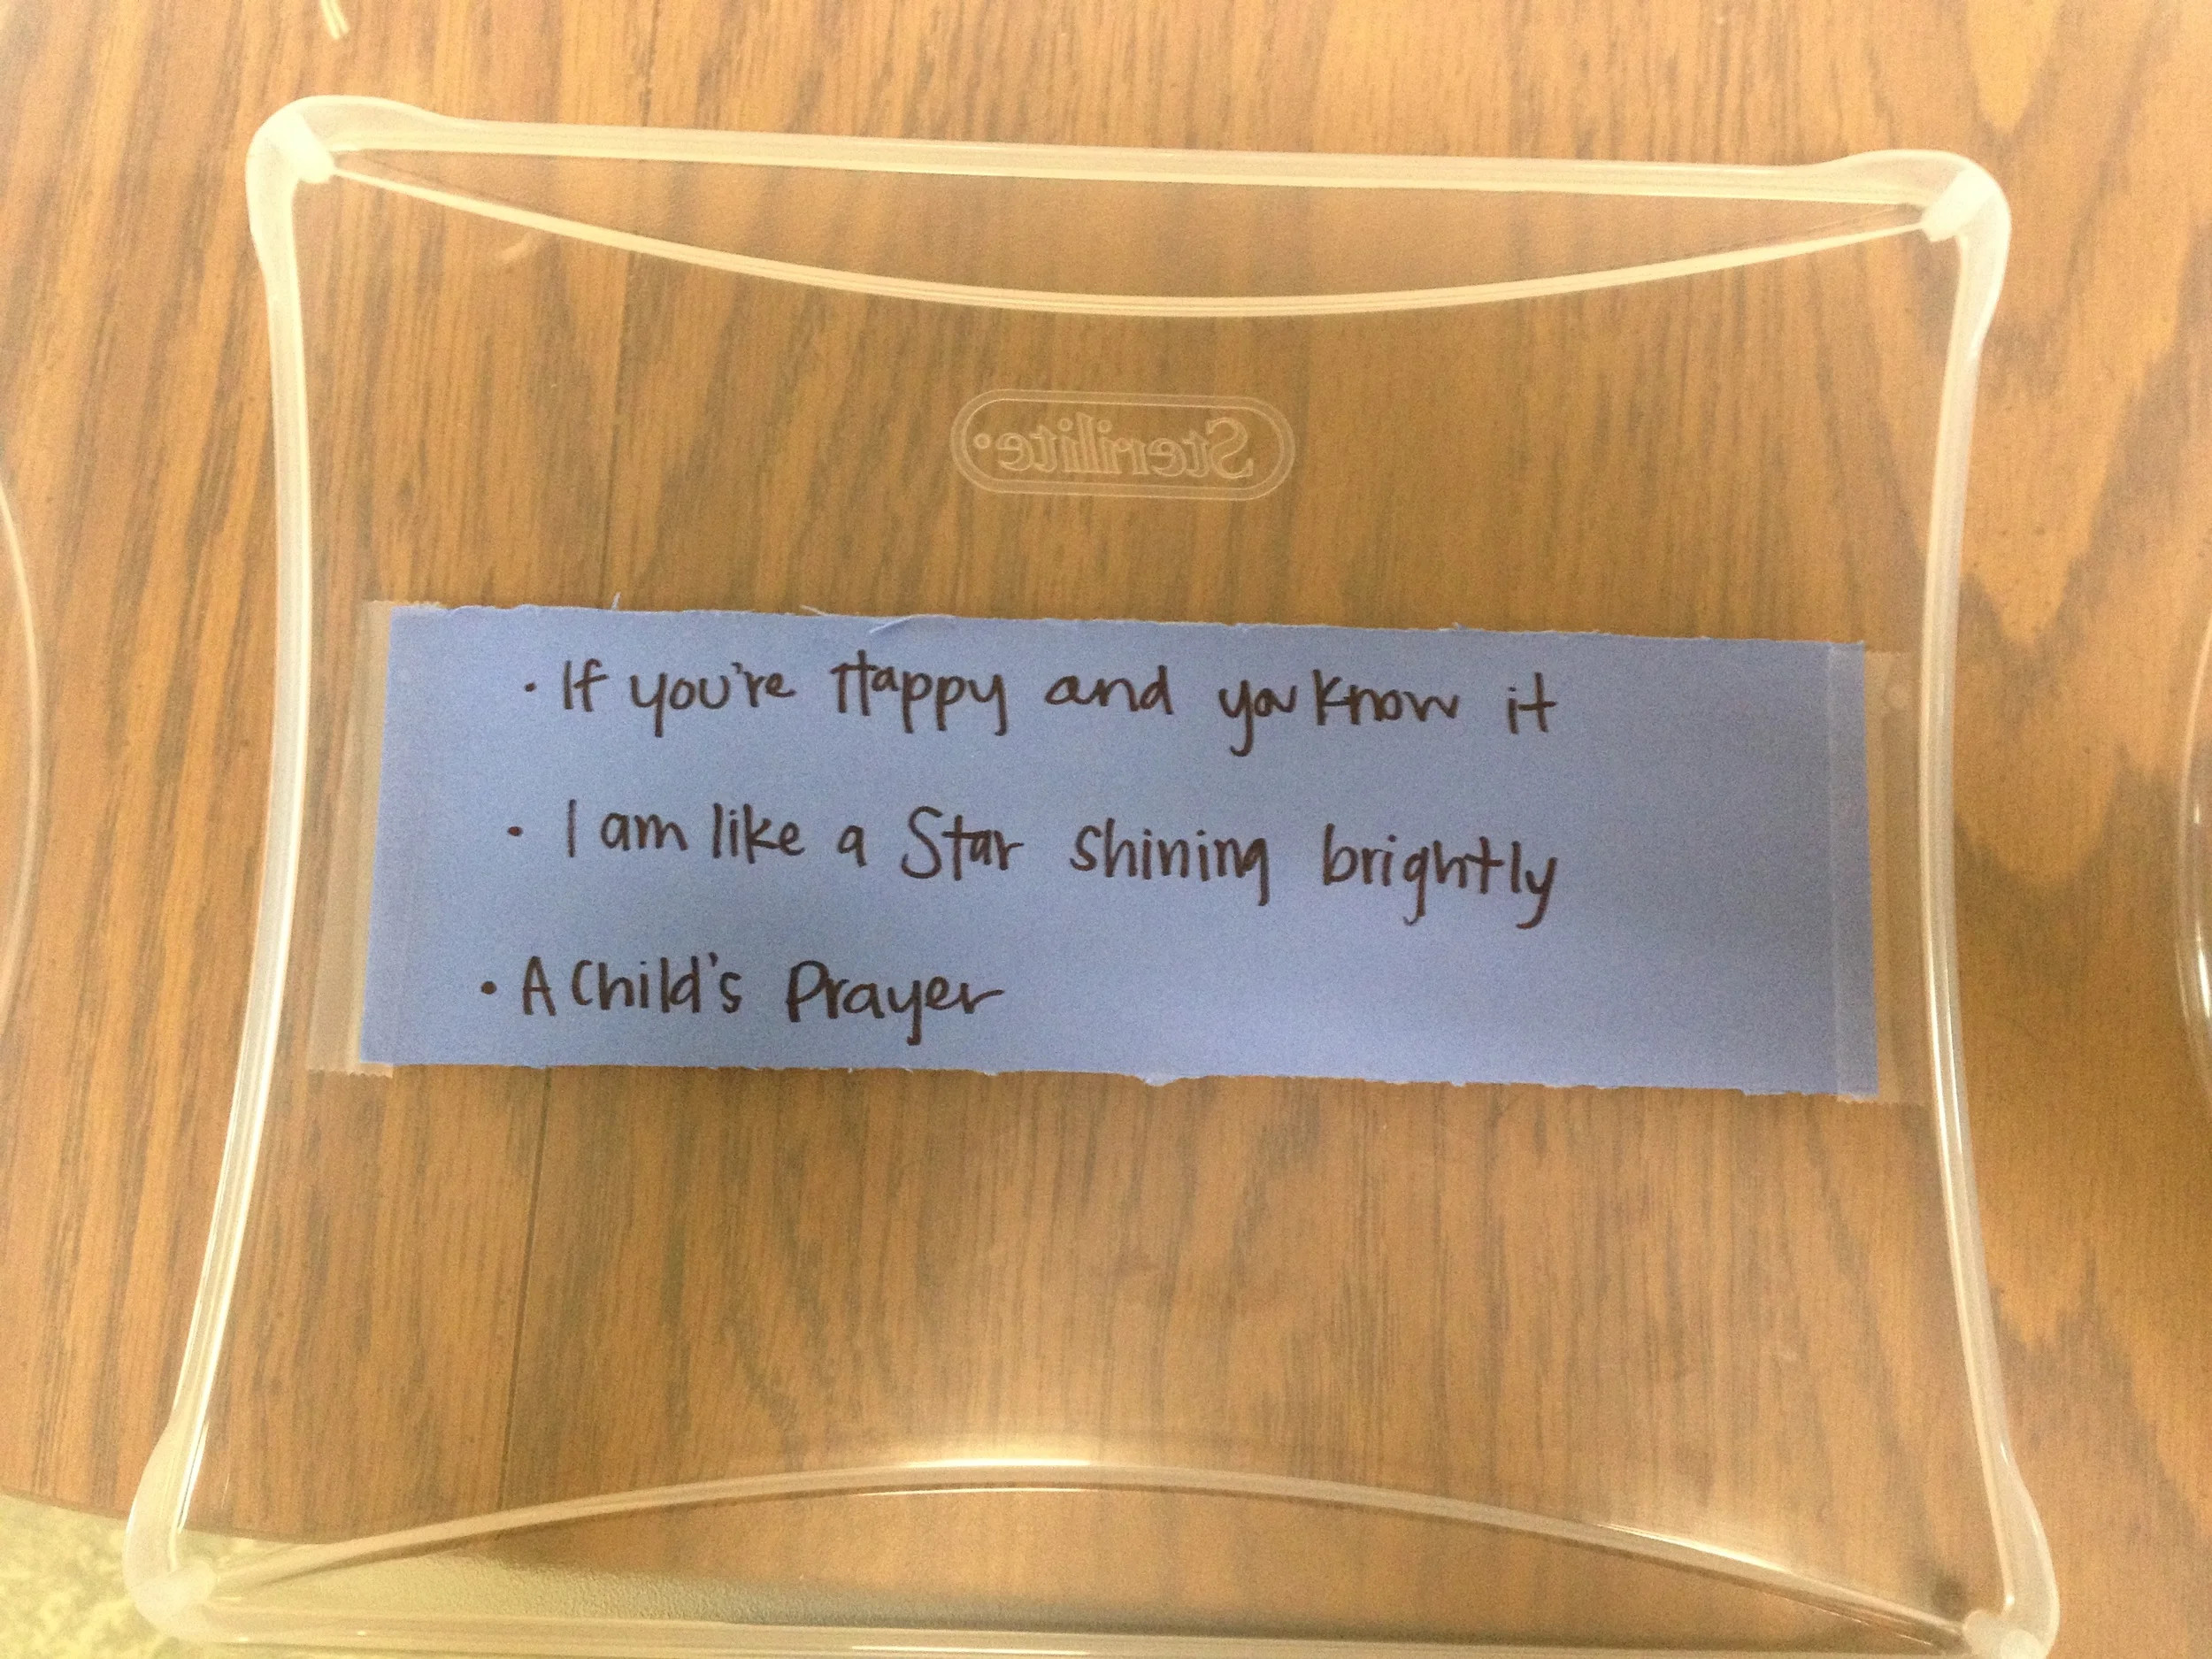 Sterilite
• If you're Happy and you know it
• I am like a Star shining brightly
• A Child's Prayer